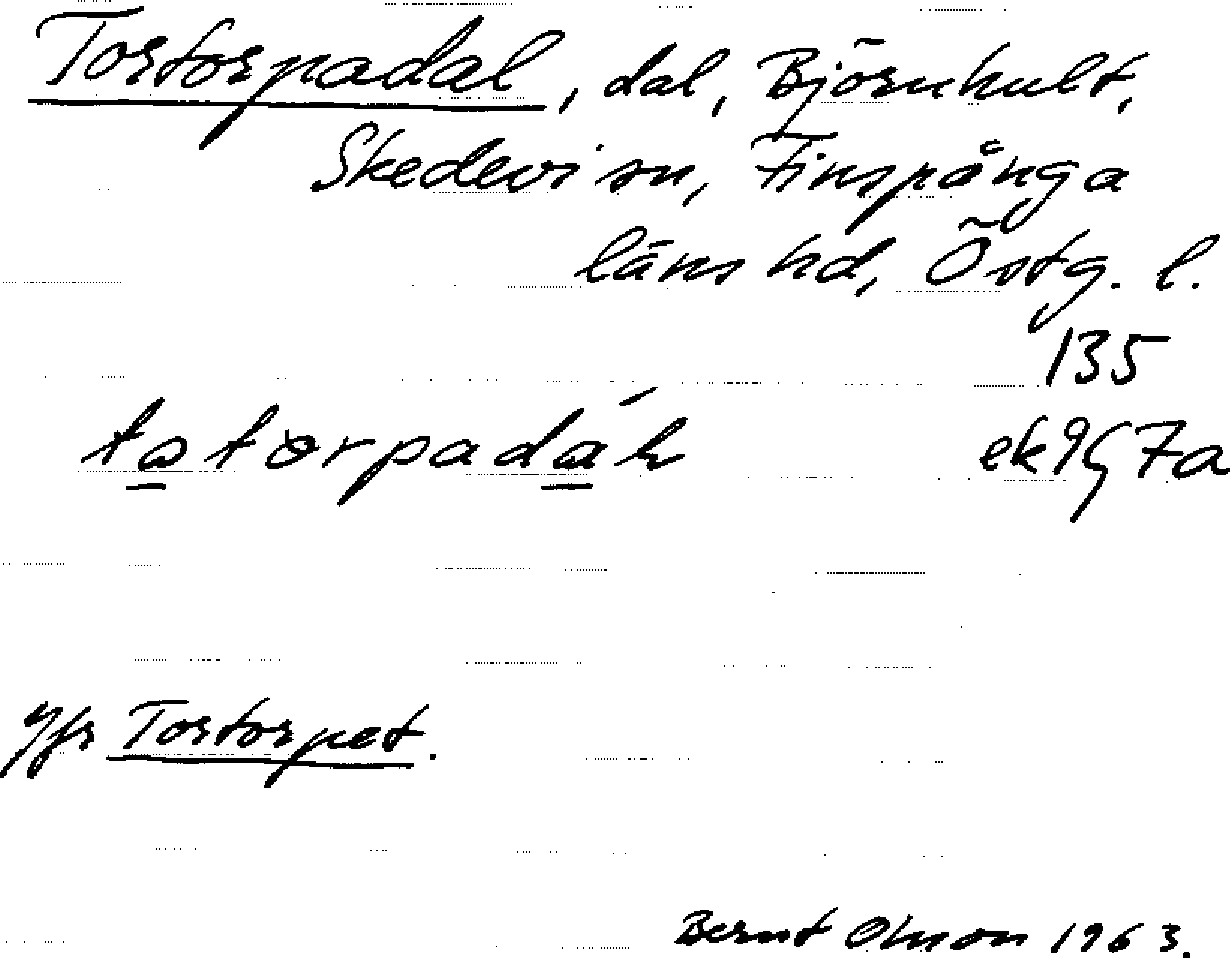 Tortorpadal, dal, Björnhult,
Skedevi sn, Finspånga
läns hd, Östg. l.
135
ek 9G 7a
Jfr Tortorpet.
Bernt Olsson 1963.